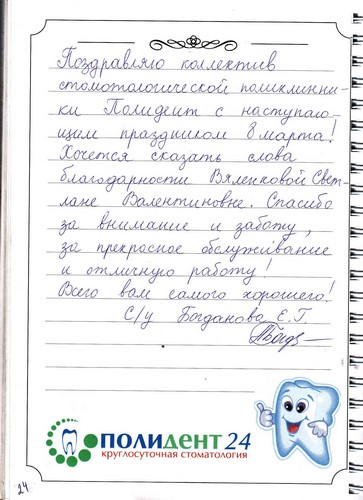 Поздравляю коллектив
стоматологической поликлини-
ки Полидент с наступаю-
щим праздником 8 марта!
Хочется сказать слова
благодарности Вяленковой Свет-
лане Валентиновне. Спасибо
за внимание и заботу,
за прекрасное обслуживание
и отличную работу!
Всего вам самого хорошего!
С/у Богданова Е.Г.
ПОЛИДЕНТ 24
круглосуточная стоматология
24